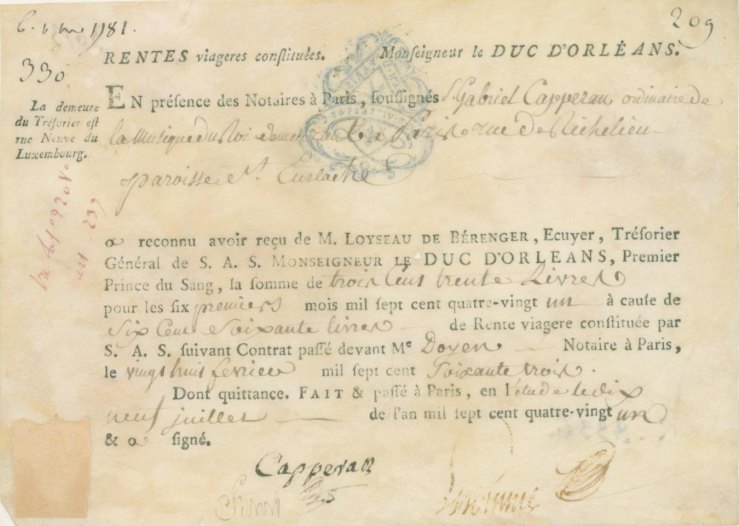 6. 1781.
209
RENTES viageres constituées. Monseigneur le DUC D'ORLÉANS.
330
La demeure
du Trésorier est
rue Neuve du
Luxembourg.
EN présence des Notaires à Paris, soussignés Sr Gabriel Capperan ordinaire de
la Musique du Roi demeurant à Paris rue de Richelieu
paroisse St. Eustache
a reconnu avoir reçu de M. LOYSEAU DE BÉRENGER, Ecuyer, Trésorier
Général de S. A. S. MONSEIGNEUR LE DUC D'ORLEANS, Premier
Prince du Sang, la somme de trois Cent trente Livres
pour les six premiers mois mil sept cent quatre-vingt un à cause de
Six Cent Soixante livres de Rente viagere constituée par
S. A. S. suivant Contrat passé devant Me Doyen Notaire à Paris,
le vingt huit février mil sept cent Soixante trois.
Dont quittance. FAIT & passé à Paris, en l'étude le dix
neuf juillet de l'an mil sept cent quatre-vingt un
& a signé.
Capperan